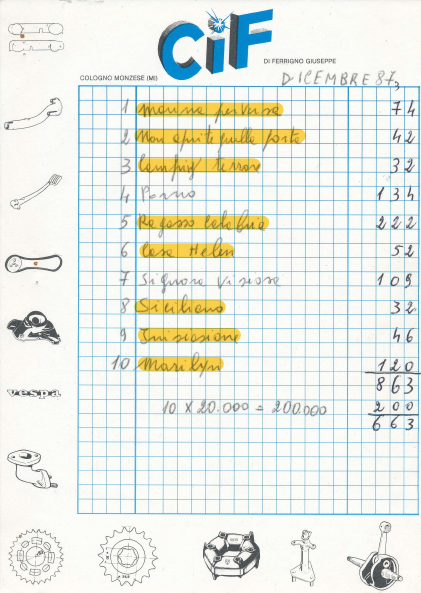 CIF
DI FERRIGNO GIUSEPPE
COLOGNO MONZESE (MI)
DICEMBRE 87,
1 mamma perversa 74
2 Non aprite quella porta 42
3 Camping terrore 32
4 Porno 134
5 Ragazzo Calabria 222
6 Casa Helen 52
7 Signora viziosa 109
8 Siciliano 32
9 Iniziazione 46
10 Marilyn 120
863
10 X 20.000 = 200.000 200
663
vespa